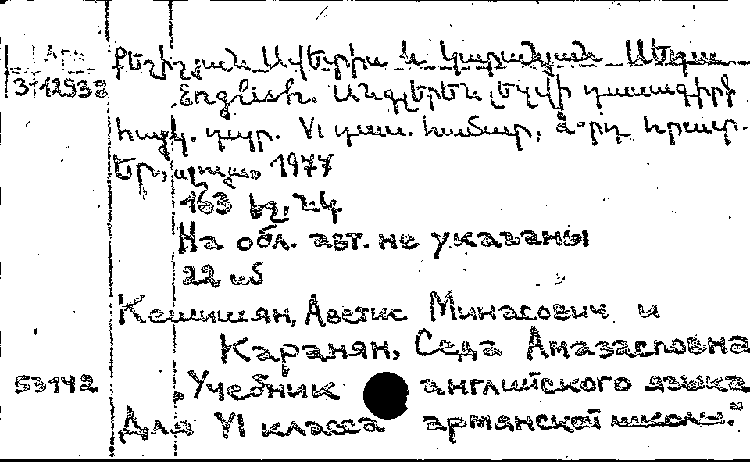 Арм
Քեշիշյան Ավետիս և Կարանյան Սեդա
3-12938
English. Անգլերեն լեզվի դասագիրք
հայկ. դպր. VI դաս. համար, 2-րդ հրատ.
Եր., Լույս, 1977
163 էջ, նկ
На обл. авт. не указаны
22 см
Кешишян, Аветис Минасович и
Каранян, Седа Амазасповна
53142 Учебник английского языка
для VI класса армянской школы.